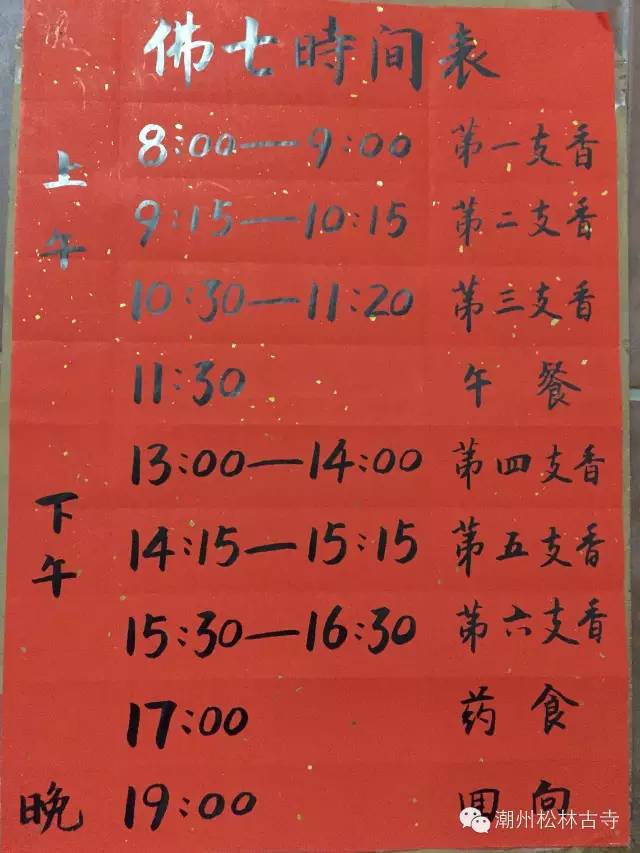 佛七時间表
上午
8:00—9:00 第一支香
9:15—10:15 第二支香
10:30—11:20 第三支香
11:30 午餐
下午
13:00—14:00 第四支香
14:15—15:15 第五支香
15:30—16:30 第六支香
17:00 药食
晚 19:00 回向
潮州松林古寺